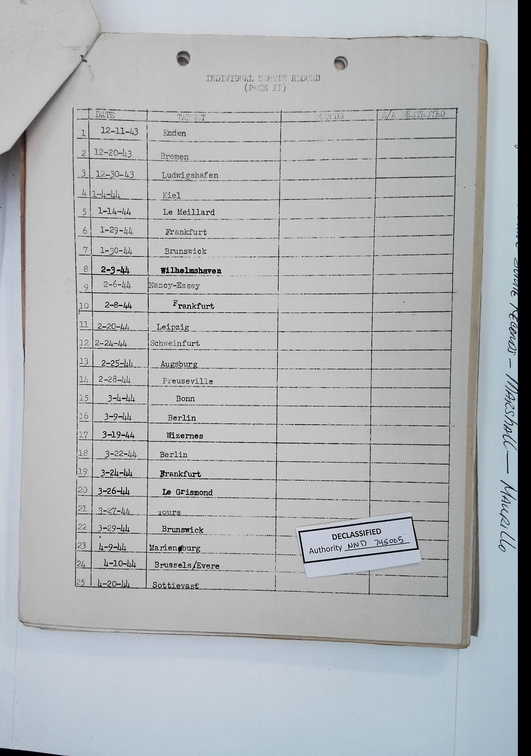 INDIVIDUAL SORTIE RECORD
(PAGE II)
DATE TARGET E/A DESTROYED
1 12-11-43 Emden
2 12-20-43 Bremen
3 12-30-43 Ludwigshafen
4 1-4-44 Kiel
5 1-14-44 Le Meillard
6 1-29-44 Frankfurt
7 1-30-44 Brunswick
8 2-3-44 Wilhelmshaven
9 2-6-44 Nancy-Essey
10 2-8-44 Frankfurt
11 2-20-44 Leipzig
12 2-24-44 Schweinfurt
13 2-25-44 Augsburg
14 2-28-44 Freuseville
15 3-4-44 Bonn
16 3-9-44 Berlin
17 3-19-44 Wizernes
18 3-22-44 Berlin
19 3-24-44 Frankfurt
20 3-26-44 Le Grismond
21 3-27-44 Tours
22 3-29-44 Brunswick
23 4-9-44 Marienburg
24 4-10-44 Brussels/Evere
25 4-20-44 Sottievast
DECLASSIFIED
Authority NND 745005
Records - Marshall - Maurillo